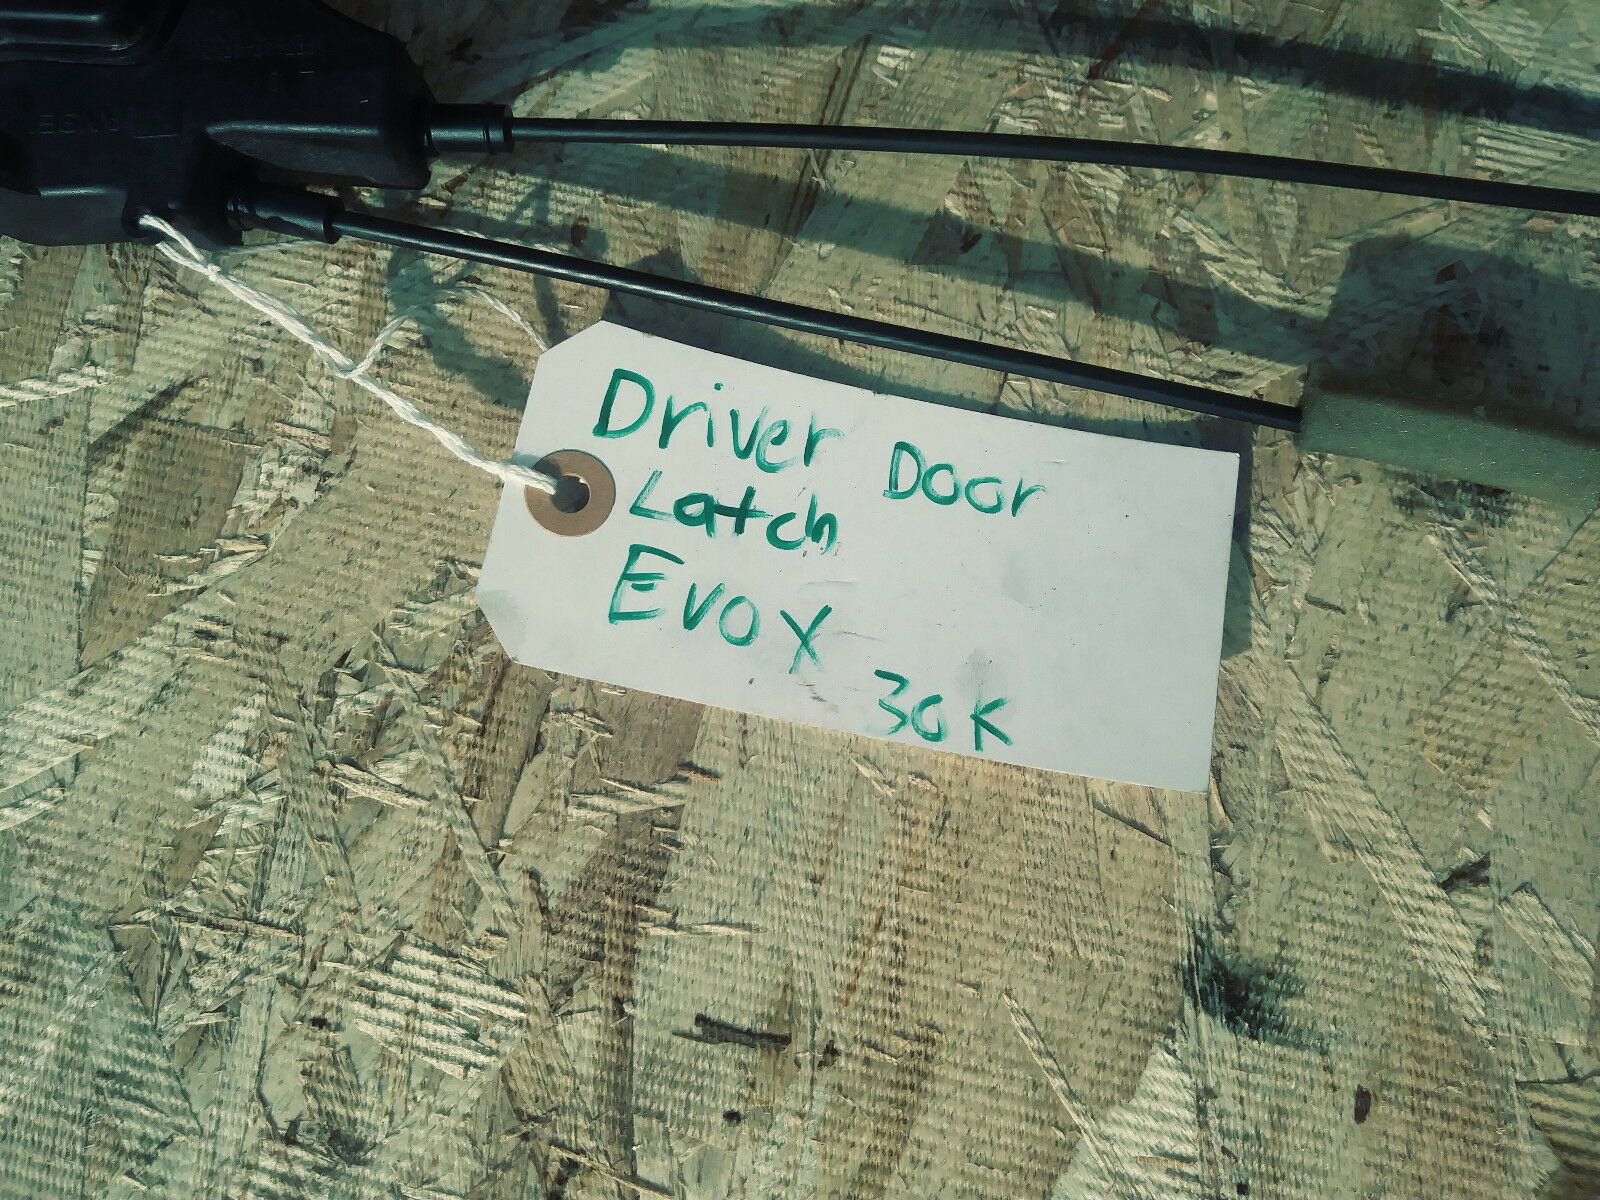 Driver Door
Latch
Evo X
30K